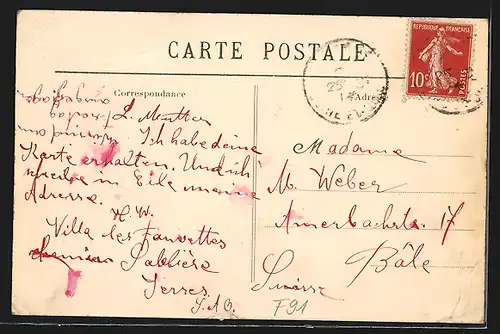 CARTE POSTALE
REPUBLIQUE FRANÇAISE
10c
POSTES
Correspondance
Adresse
L. Mutter
Ich habe deine
Karte erhalten. Und ich
in Eile meine
Adresse.
H. W.
Villa les Fauvettes
chemin
S. & O.
Madame
M. Weber
Amerbachstr. 17
Bâle
Suisse
F91